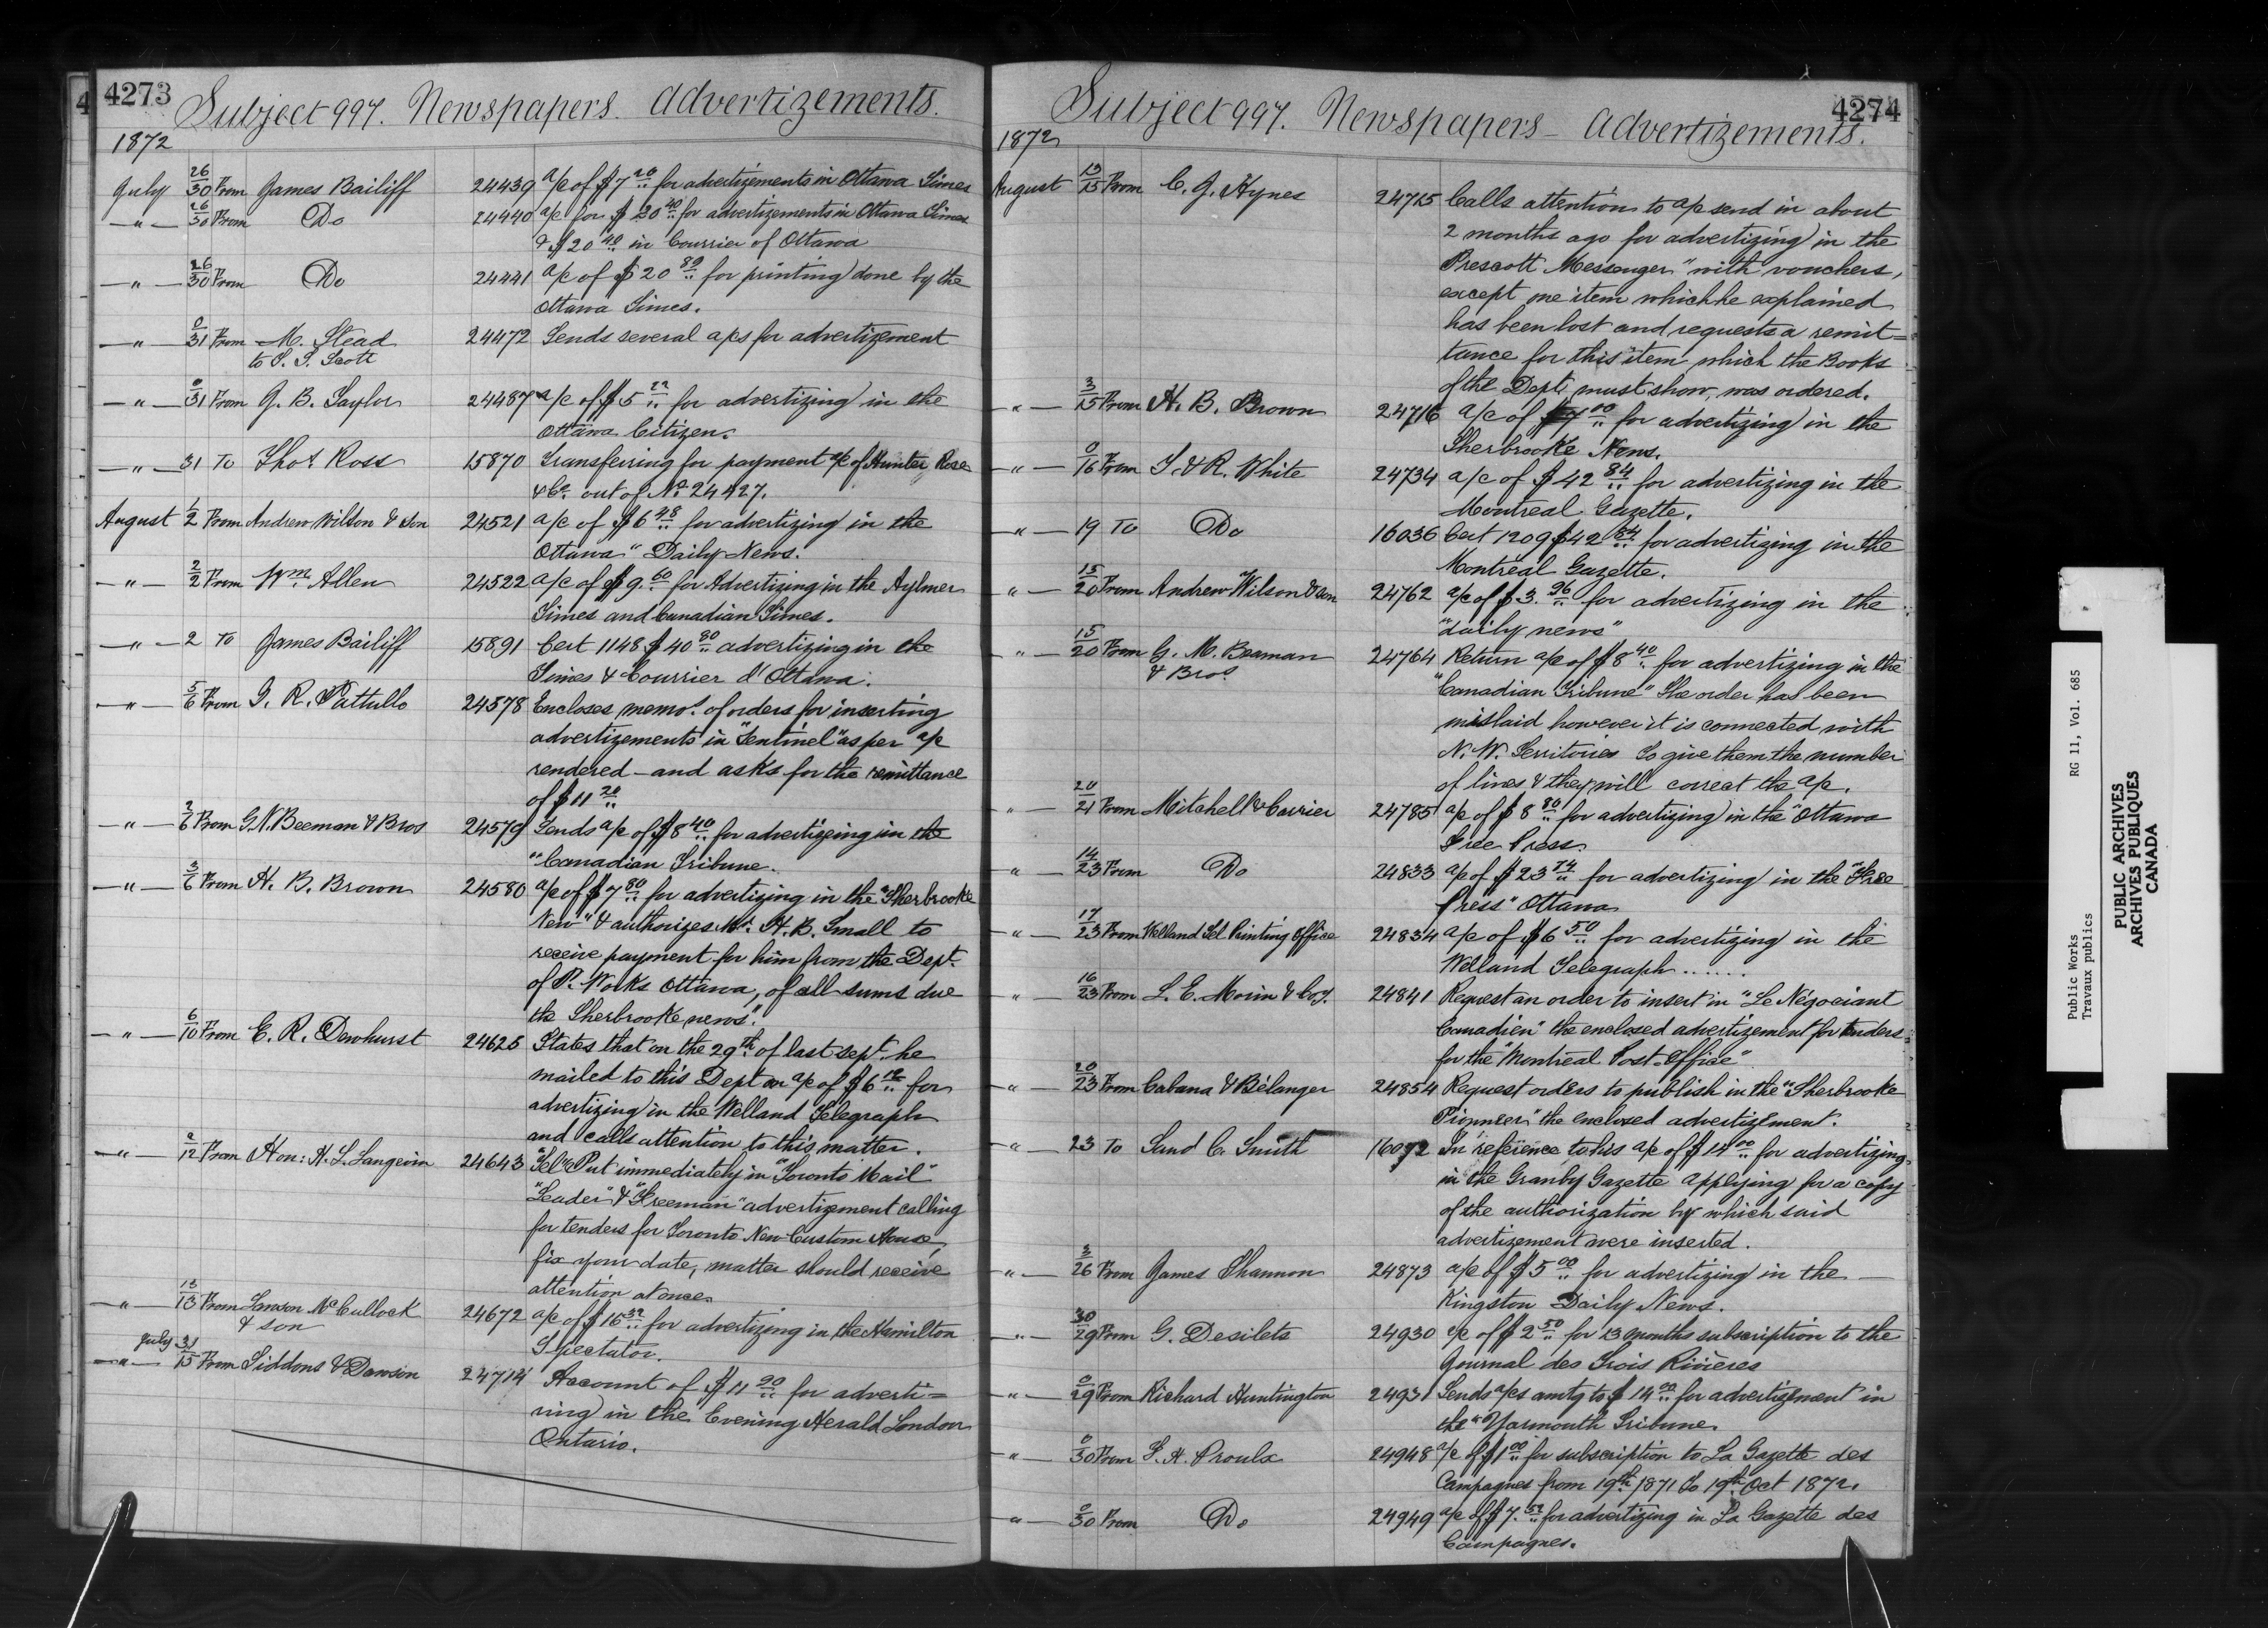 4
4273
Subject 997. Newspapers. Advertizements.
1872
July 26/30 From James Bailiff 24439 a/c of $7 20 for advertizements in Ottawa Times
-"- 26/30 From Do 24440 a/c for $20 40 for advertizements in Ottawa Times
& $20 40 in Courrier of Ottawa
-"- 26/30 From Do 24441 a/c of $20 89 for printing done by the
Ottawa Times.
-"- 0/31 From M. Stead 24472 Sends several a/cs for advertizement
to T. S. Scott
-"- 0/31 From G. B. Taylor 24487 a/c of $5 22 for advertizing in the
Ottawa Citizen.
-"- 31 To Thos Ross 15870 Transferring for payment a/c of Hunter Rose
& Co. out of No. 24427.
August 1/2 From Andrew Wilson & Son 24521 a/c of $6 48 for advertizing in the
Ottawa "Daily News.
-"- 2/2 From Wm Allen 24522 a/c of $9. 60 for Advertizing in the Aylmer
Times and Canadian Times.
-"- 2 To James Bailiff 15891 Cert 1148 $40 80 advertizing in the
Times & Courrier d'Ottawa.
-"- 5/6 From G. R. Pattullo 24578 Encloses memo. of orders for inserting
advertizements in "Sentinel" as per a/c
rendered - and asks for the remittance
of $11 20
-"- 2/6 From G. N. Beeman & Bros 24579 Sends a/c of $8 40 for advertizeing in the
"Canadian Tribune.
-"- 3/6 From H. B. Brown 24580 a/c of $7 80 for advertizing in the "Sherbrooke
New" & authorizes Mr. H. B. Small to
receive payment for him from the Dept.
of P. Works Ottawa, of all sums due
the Sherbrooke news".
-"- 6/10 From E. R. Dewhurst 24625 States that on the 29th of last Sept. he
mailed to this Dept an a/c of $6 12 for
advertizing in the Welland Telegraph
and calls attention to this matter.
-"- 2/12 From Hon: H. L. Langevin 24643 "Tel" Put immediately in "Toronto Mail"
"Leader" & "Freeman" advertizement calling
for tenders for Toronto New Custom House,
fix your date, matter should receive
attention at once.
-"- 12/13 From Lawson McCullock 24672 a/c of $16 32 for advertizing in the Hamilton
& son
Spectator.
July 31
-"- 15 From Siddons & Dawson 24714 Account of $11 90 for adverti=
zing in the Evening Herald London
Ontario.
4274
Subject 997. Newspapers - Advertizements.
1872
August 13/15 From C. J. Hynes 24715 Calls attention to a/c send in about
2 months ago for advertizing in the
Prescott Messenger" with vouchers,
except one item which he explained
has been lost and requests a remit=
tance for this item which the Books
of the Dept, must show, was ordered.
-"- 3/15 From H. B. Brown 24716 a/c of $7 00 for advertizing in the
Sherbrooke News.
-"- 0/16 From T. & R. White 24734 a/c of $42 84 for advertizing in the
Montreal Gazette.
-"- 19 To Do 16036 Cert 1209 $42 84 for advertizing in the
Montreal Gazette.
-"- 15/20 From Andrew Wilson & son 24762 a/c of $3. 96 for advertizing in the
"daily news"
-"- 15/20 From G. M. Beaman 24764 Return a/c of $8 40 for advertizing in the
& Bros.
"Canadian Tribune" The order has been
mislaid however it is connected with
N. W. Territories To give them the number
of lines & they will correct the a/c.
-"- 20/21 From Mitchell & Currier 24785 a/c of $8 80 for advertizing in the "Ottawa
Free Press.
-"- 14/23 From Do 24833 a/c of $23 74 for advertizing in the "Free
Press" Ottawa
-"- 17/23 From Welland Tel Printing Office 24834 a/c of $6 50 for advertizing in the
Welland Telegraph ......
-"- 16/23 From L. E. Morin & Coy. 24841 Request an order to insert in "Le Négociant
Canadien" the enclosed advertizement for tenders
for the "Montreal Post-Office"
-"- 20/23 From Cabana & Bélanger 24854 Request orders to publish in the "Sherbrooke
Pionneer" the enclosed advertizement.
-"- 23 To Sand C. Smith 16072 In reference to his a/c of $14 00 for advertizing
in the Granby Gazette applying for a copy
of the authorization by which said
advertizement were inserted.
-"- 3/26 From James Shannon 24873 a/c of $5 00 for advertizing in the —
Kingston Daily News.
-"- 30/29 From G. Desilets 24930 a/c of $2 50 for 13 months subscription to the
Journal des Trois Rivières
-"- 0/29 From Richard Huntington 24931 Sends a/cs amtg to $14 00 for advertizement in
the "Yarmouth Tribune.
-"- 0/30 From F. H. Proulx 24948 a/c of $1 00 for subscription to La Gazette des
Campagnes from 19th 1871 to 19th Oct 1872.
-"- 0/30 From Do 24949 a/c of $7. 52 for advertizing in La Gazette des
Campagnes.
Public Works RG 11, Vol. 685
Travaux publics
PUBLIC ARCHIVES
ARCHIVES PUBLIQUES
CANADA